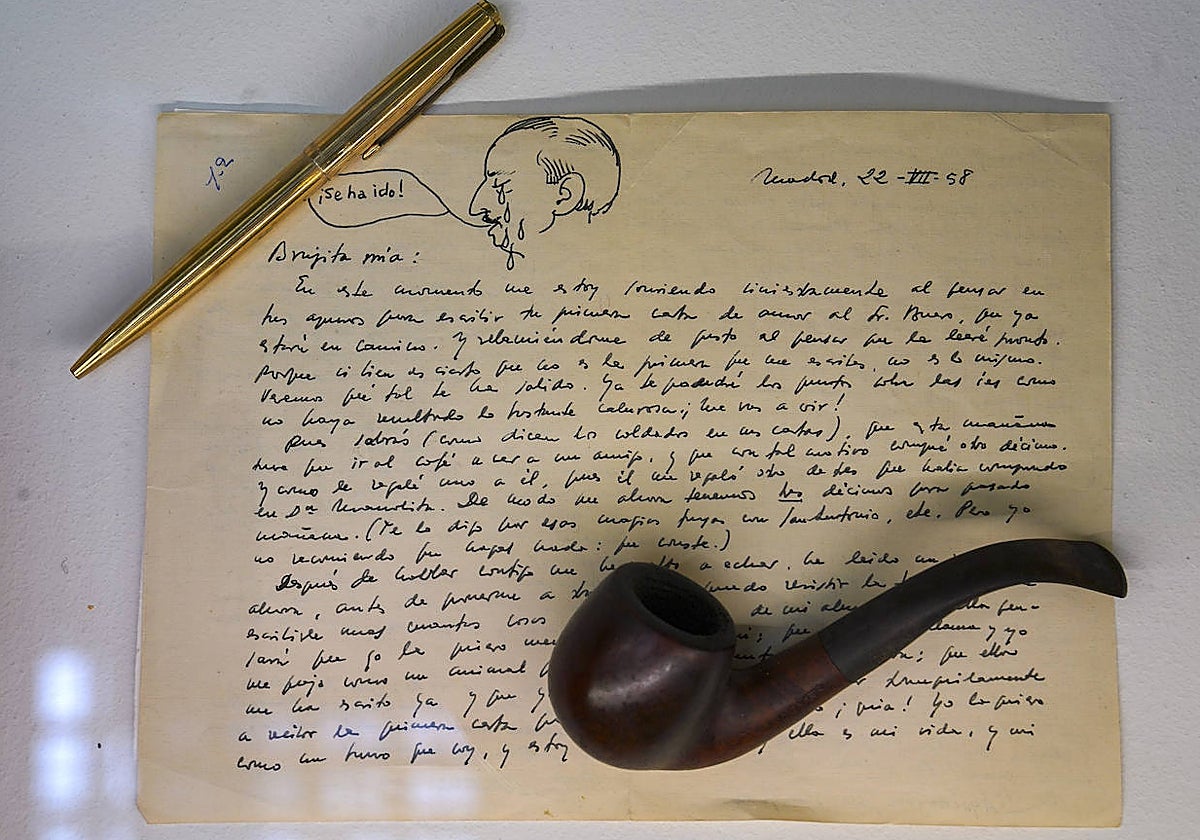 1ª
¡Se ha ido!
Madrid, 22-VII-58
Brujita mía:
En este momento me estoy sonriendo siniestramente al pensar en
tus apuros para escribir tu primera carta de amor al Sr. Buero, que ya
estará en camino. Y relamiéndome de gusto al pensar que la leeré pronto.
Porque si bien es cierto que no es la primera que me escribes, no es lo mismo.
Veremos qué tal te ha salido. Ya te pondré los puntos sobre las íes como
no haya resultado lo bastante calurosa; ¡me vas a oír!
Pues sabrás (como dicen los soldados en sus cartas), que esta mañana
tuve que ir al café a ver a un amigo, y que con tal motivo compré otro décimo.
Y como le regalé uno a él, pues él me regaló otro de dos que había comprado
en Dª Manolita. De modo que ahora tenemos tres décimos para pasado
mañana. (Te lo digo por esas magias tuyas con San Antonio, etc. Pero yo
no recomiendo que hagas nada: que conste.)
Después de hablar contigo me he a echar, he leído
ahora, antes de ponerme a puedo resistir la
escribirle unas cuantas cosas de mi alma
que yo la quiero ; que y yo
me pojo como un animal ; que ella
me ha escrito ya y que y tranquilamente
a recibir la primera carta ¡mía! Yo la quiero
como un burro que soy, y estoy y ella es mi vida, y mi